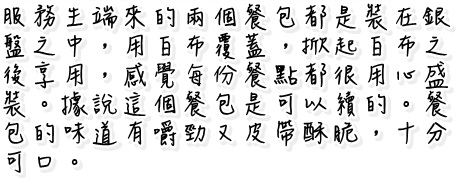 服務生端來的兩個餐包都是裝在銀
盤之中，用白布覆蓋，掀起白布之
後享用，感覺每份餐點都很用心盛
裝。據說這個餐包是可以續的。餐
包的味道有嚼勁又皮帶酥脆，十分
可口。